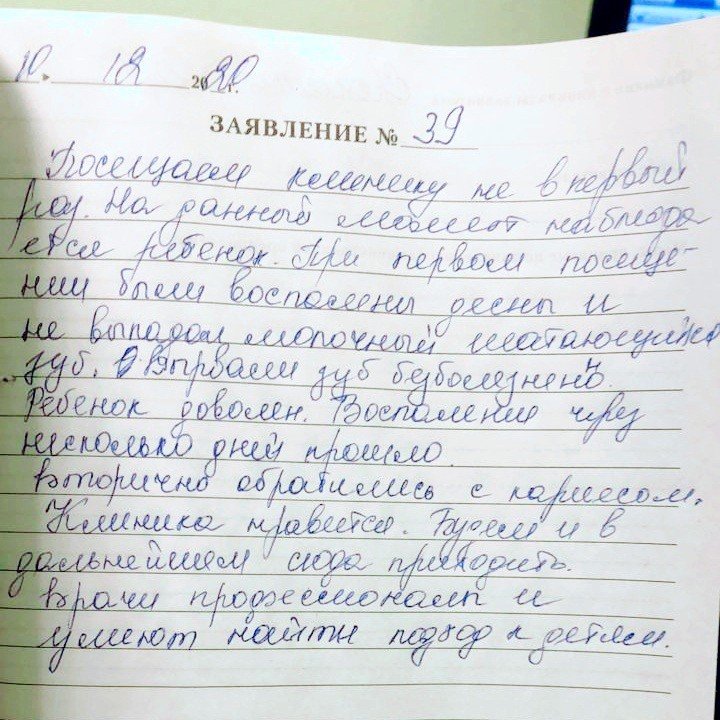 10. 12 2020г.
ЗАЯВЛЕНИЕ № 39
Посещаем клинику не в первый
раз. На данный момент наблюда
ется ребенок. При первом посеще-
нии были воспалены десны и
не выпадал молочный шатающийся
зуб. Вырвали зуб безболезненно.
Ребенок доволен. Воспаление через
несколько дней прошло.
Вторично обратились с кариесом.
Клиника нравится. Будем и в
дальнейшем сюда приходить.
Врачи профессионалы и
умеют найти подход к детям.